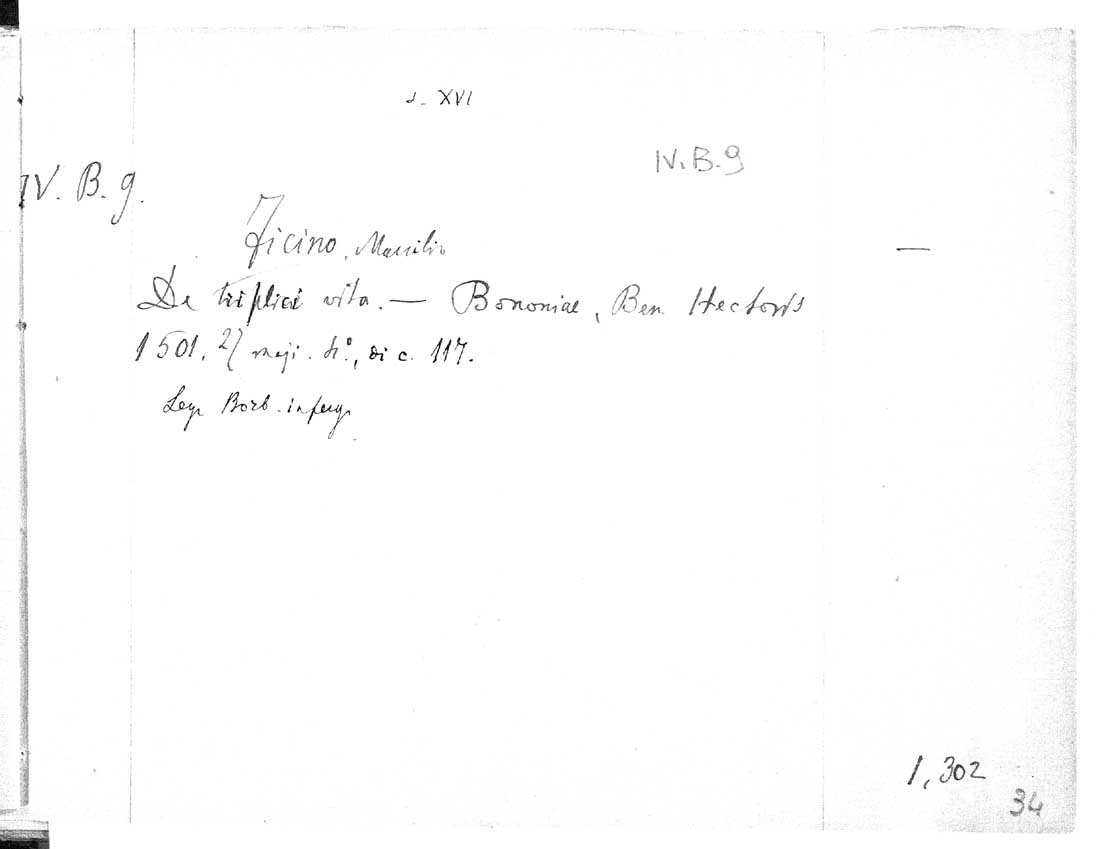 s. XVI
IV. B. 9
IV. B. 9.
Ficino, Marsilio
—
De triplici vita. — Bononiae, Ben Hectoris
1501. 2/ maji. 4°, di c. 117.
Leg. Borb.
1,302
34